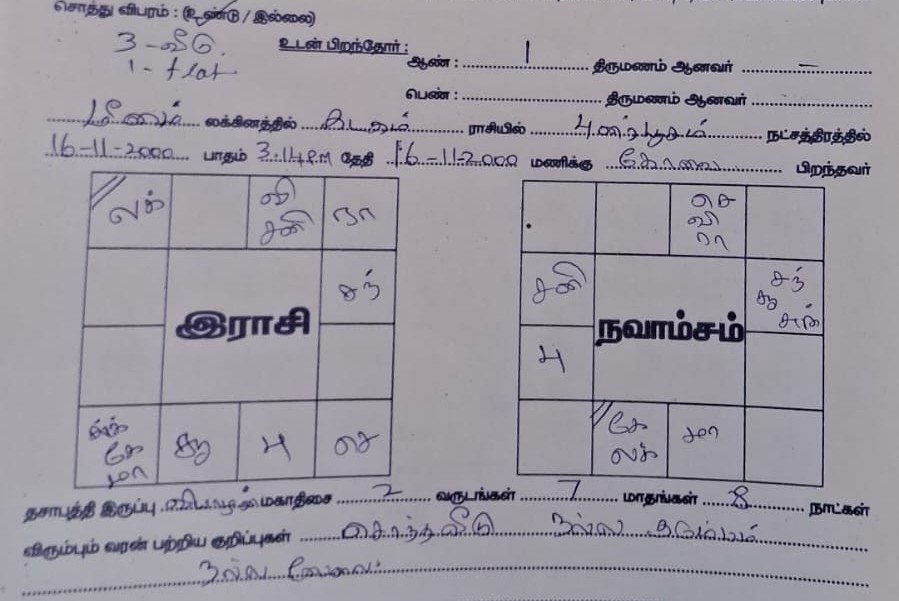 சொத்து விபரம் : (உண்டு / இல்லை)
3 - வீடு. உடன் பிறந்தோர் :
1 - flat ஆண் : 1 திருமணம் ஆனவர் –
பெண் : திருமணம் ஆனவர்
மீனம் லக்கினத்தில் கடகம் ராசியில் புனர்பூசம் நட்சத்திரத்தில்
16-11-2000 பாதம் 3.14 PM தேதி 16-11-2000 மணிக்கு கோவை பிறந்தவர்
லக் வி சனி ரா
சந்
இராசி
கே மா சூ பு செ
செ வி ரா
சனி சந் சூ
நவாம்சம்
பு
கே லக் மா
தசாபுத்தி இருப்பு வியாழன் மகாதிசை 2 வருடங்கள் 7 மாதங்கள் 8 நாட்கள்
விரும்பும் வரன் பற்றிய குறிப்புகள் சொந்தவீடு நல்ல குடும்பம்
நல்ல வேலை.